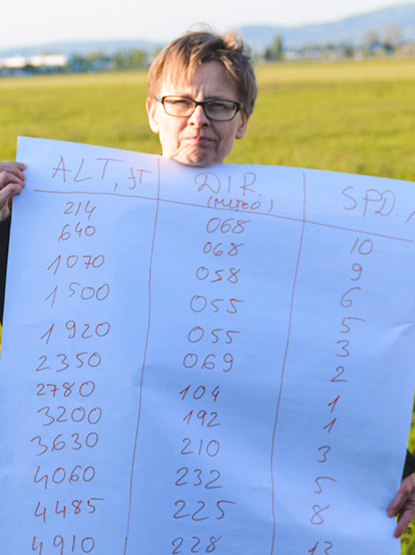 ALT, ft DIR. SPD.
(METEO)
214 068 10
640 068 9
1070 058 6
1500 055 5
1920 055 3
2350 069 2
2780 104 1
3200 192 1
3630 210 3
4060 232 5
4485 225 8
4910 228